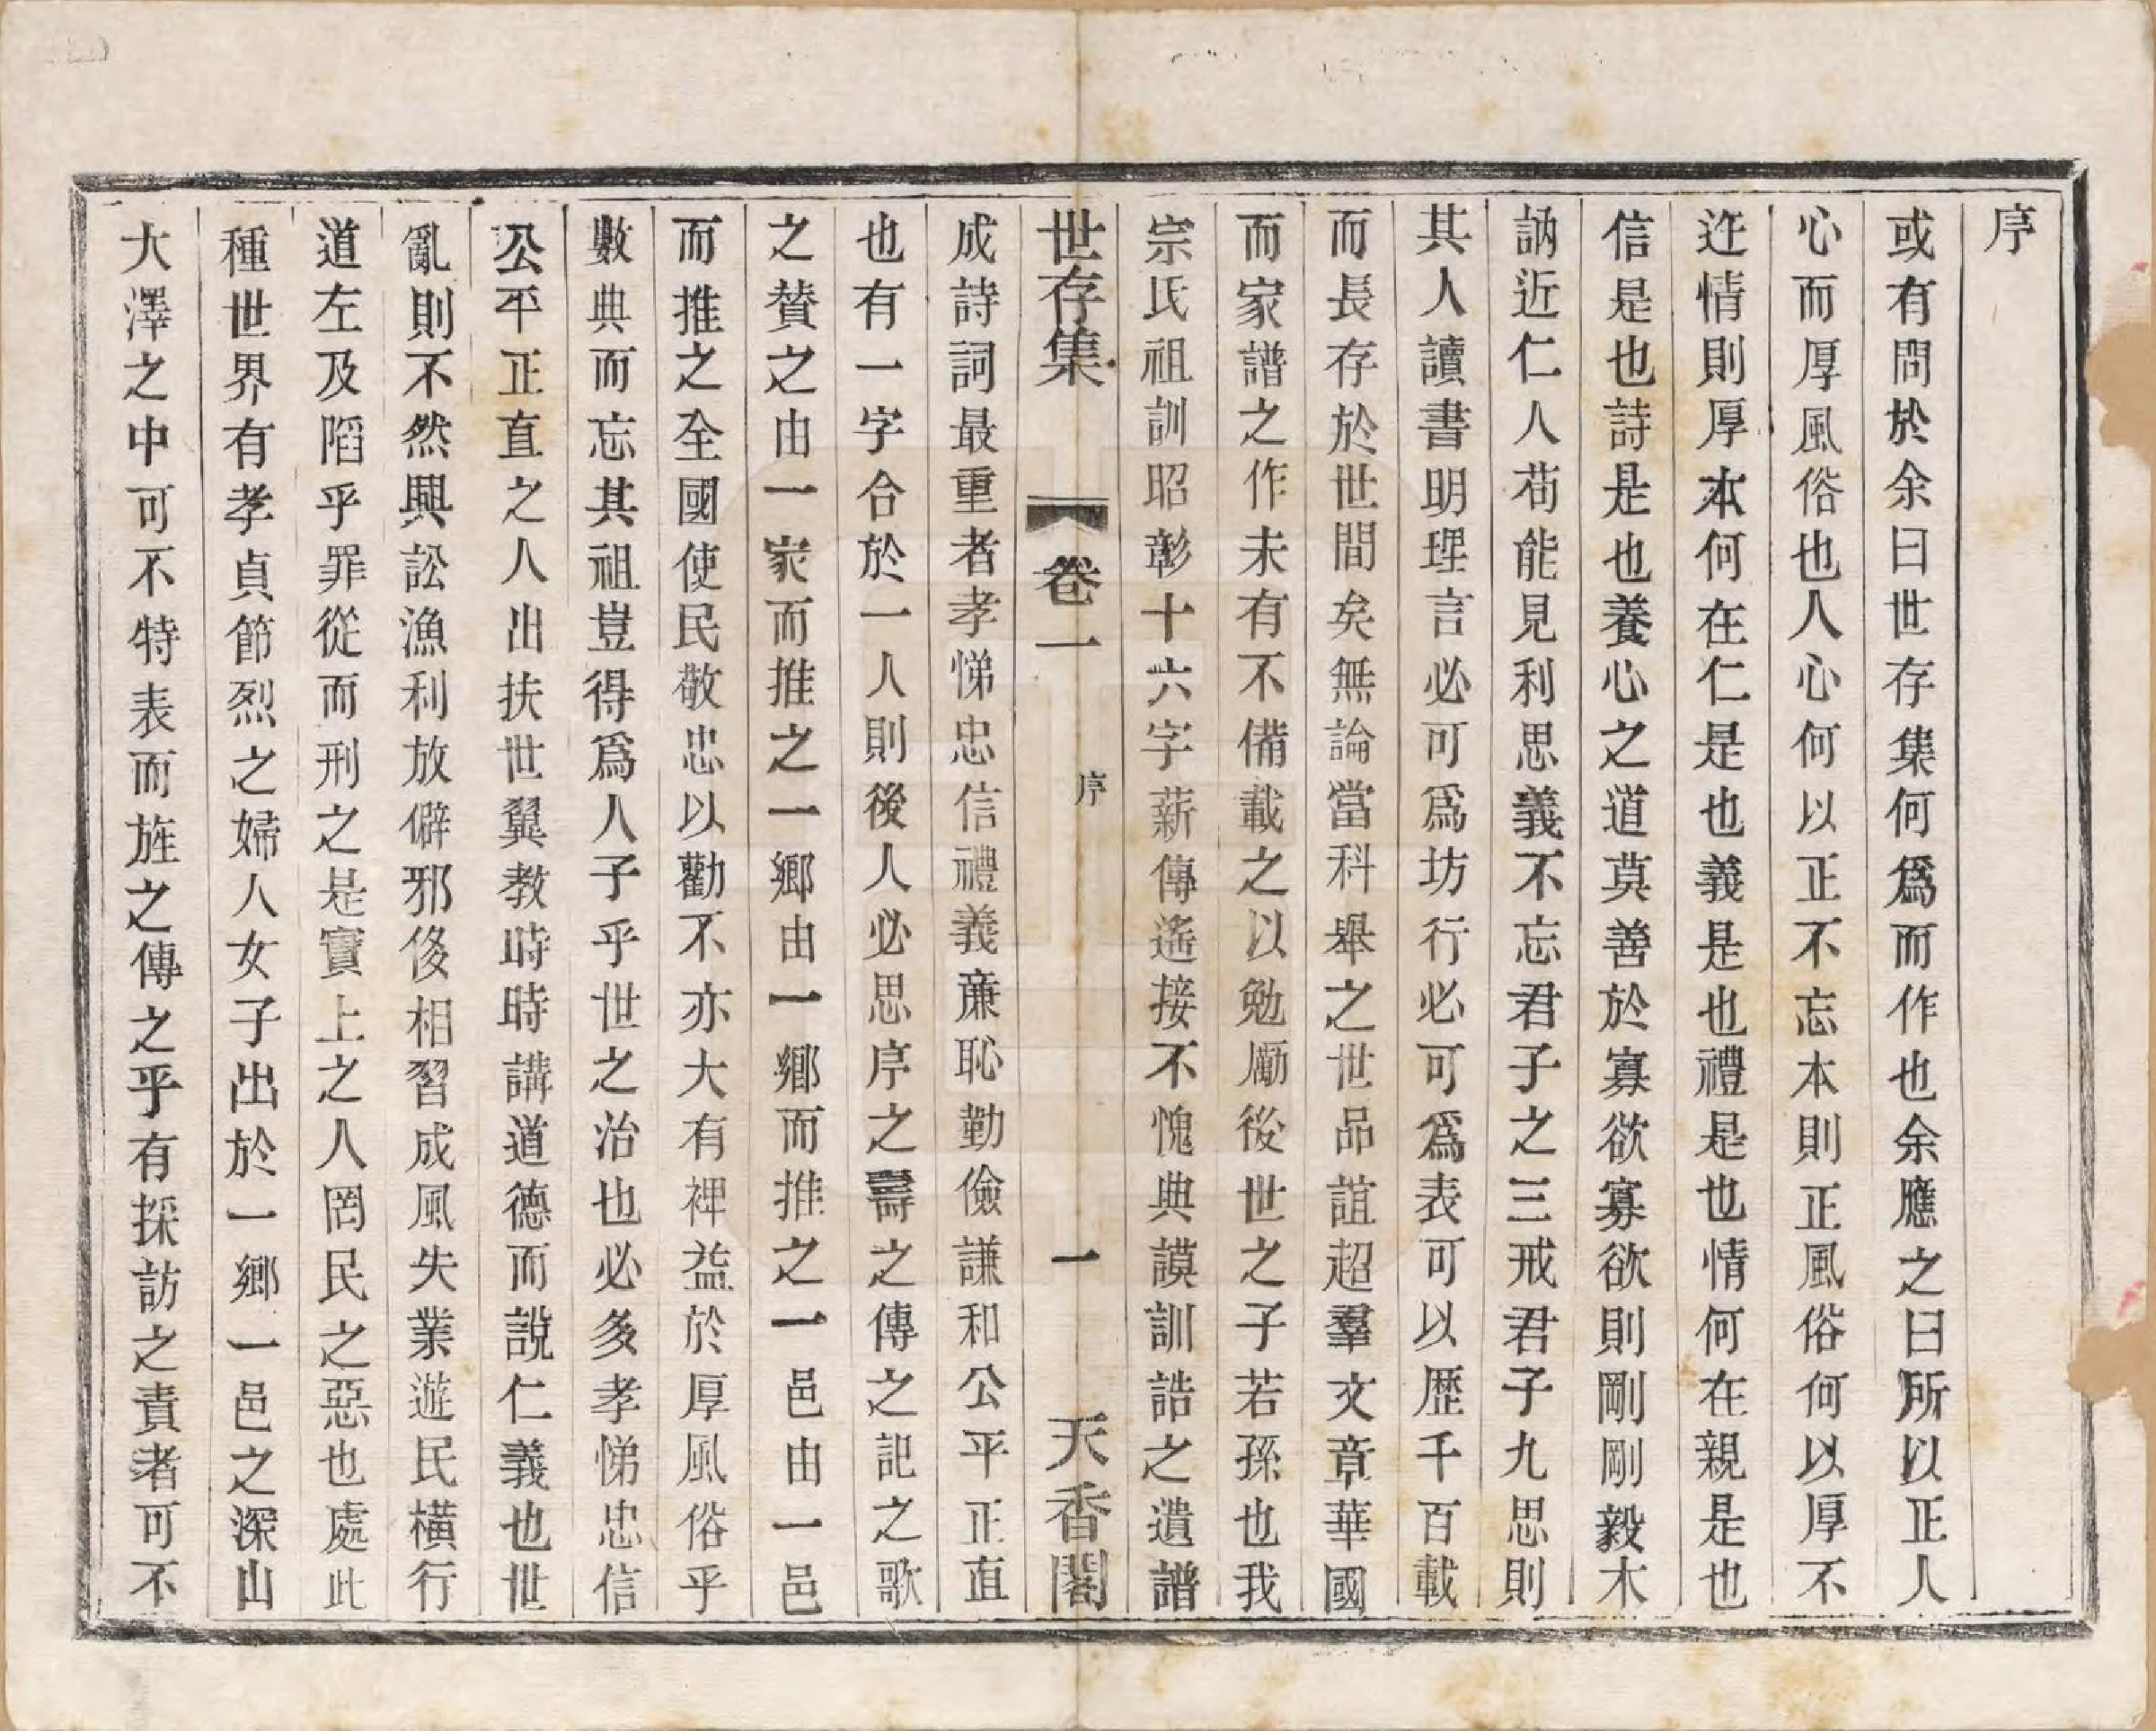 序
或有問於余曰世存集何爲而作也余應之曰所以正人
心而厚風俗也人心何以正不忘本則正風俗何以厚不
迕情則厚本何在仁是也義是也禮是也情何在親是也
信是也詩是也養心之道莫善於寡欲寡欲則剛剛毅木
訥近仁人苟能見利思義不忘君子之三戒君子九思則
其人讀書明理言必可爲坊行必可爲表可以歷千百載
而長存於世間矣無論當科舉之世品誼超羣文章華國
而家譜之作未有不備載之以勉勵後世之子若孫也我
宗氏祖訓昭彰十六字薪傳遙接不愧典謨訓誥之遺譜
世存集 卷一 序 一 天香閣
成詩詞最重者孝悌忠信禮義廉恥勤儉謙和公平正直
也有一字合於一人則後人必思序之壽之傳之記之歌
之贊之由一家而推之一鄉由一鄉而推之一邑由一邑
而推之全國使民敬忠以勸不亦大有裨益於厚風俗乎
數典而忘其祖豈得爲人子乎世之治也必多孝悌忠信
公平正直之人出扶世翼教時時講道德而說仁義也世
亂則不然興訟漁利放僻邪侈相習成風失業遊民橫行
道左及陷乎罪從而刑之是實上之人罔民之惡也處此
種世界有孝貞節烈之婦人女子出於一鄉一邑之深山
大澤之中可不特表而旌之傳之乎有採訪之責者可不